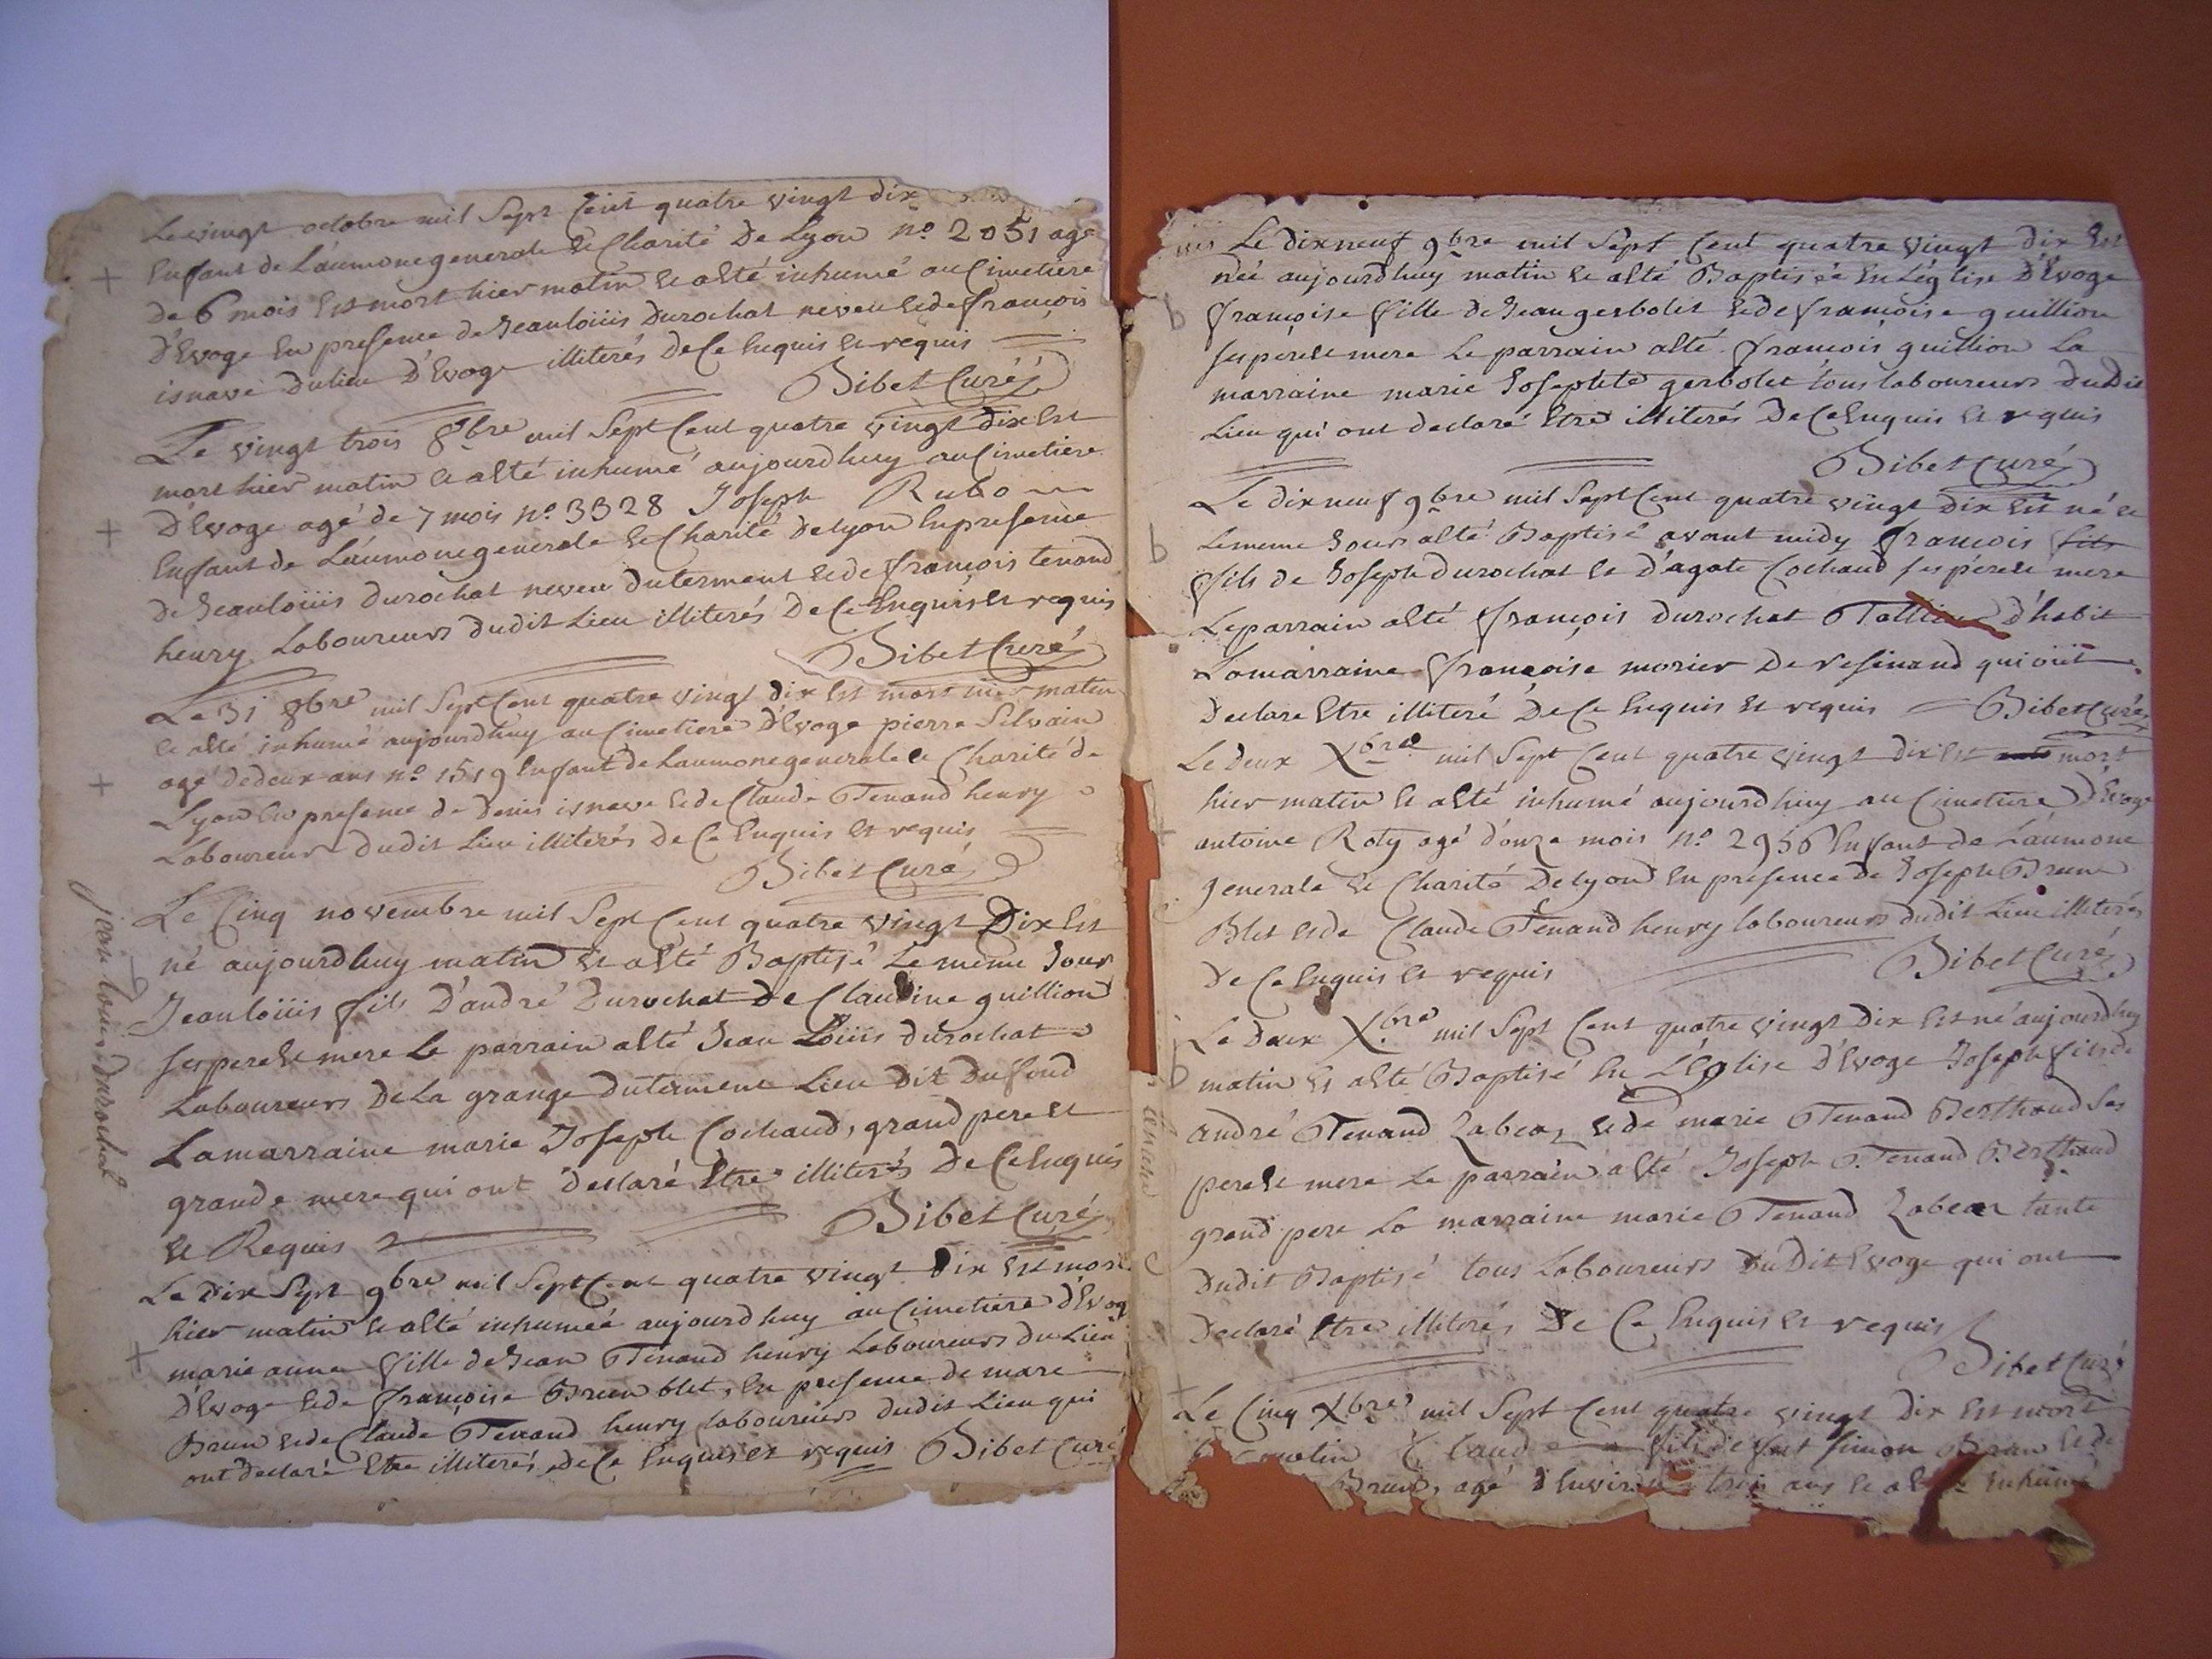 Le vingt octobre mil Sept Cent quatre vingt dix
Enfant de L'aumone generale et Charité De Lyon n° 2051 agé
de 6 mois est mort hier matin et a été inhumé au Cimetiere
D'Evoge en presence de Jean loüis Durochat neveu et de françois
isnave du lieu D'Evoge illiterés De Ce Enquis et requis
Bibet Curé
Le vingt trois 8bre mil Sept Cent quatre vingt dix Est
mort hier matin et a été inhumé aujourdhuy au Cimetiere
D'Evoge agé de 7 mois n° 3328 Joseph Rubo
Enfant de L'aumone generale et Charité de Lyon En presence
De Jean loüis durochat neveu du terment et de françois tenand
henry Laboureurs dudit Lieu illiterés De Ce Enquis et requis
Bibet Curé
Le 31 8bre mil Sept Cent quatre vingt dix est mort hier matin
et a été inhumé aujourdhuy au Cimetiere D'Evoge pierre Silvain
agé de deux ans n° 1519 Enfant de L'aumone generale et Charité de
Lyon En presence de Denis isnave et de Claude Tenand henry
Laboureurs dudit Lieu illiterés De Ce Enquis et requis
Bibet Curé
Le Cinq novembre mil Sept Cent quatre vingt Dix Est
né aujourdhuy matin et a été Baptisé Le même Jour
Jean loüis fils D'andré Durochat De Claudine guillion
ses pere et mere Le parrain a été Jean Loüis durochat
Laboureurs De La grange du terment Lieu Dit Du fond
La marraine marie Joseph Cochaud, grand pere et
grande mere qui ont Declaré Etre illiterés De Ce Enquis
et Requis
Bibet Curé
Le Dix Sept 9bre mil Sept Cent quatre vingt Dix Est mort
hier matin et a été inhumée aujourdhuy au Cimetiere d'Evoge
marie anne fille de Jean Tenand henry Laboureurs du Lieu
D'Evoge et de françoise Brun blet, En presence de marc
Brun et de Claude Tenand henry laboureurs dudit Lieu qui
ont declaré Etre illiterés De Ce Enquis et requis Bibet Curé
jean louis durochat
Le dix neuf 9bre mil Sept Cent quatre vingt dix Est
née aujourdhuy matin et a été Baptisée En L'église D'Evoge
françoise fille De Jean gerbolet et de françoise guillion
ses pere et mere Le parrain a été françois guillion La
marraine marie Josephte gerbolet tous laboureurs Dudit
Lieu qui ont declaré Etre illiterés De Ce Enquis et requis
Bibet Curé
Le dix neuf 9bre mil Sept Cent quatre vingt Dix Est né et
Le meme Jour a été Baptisé avant midy françois fils
fils de Joseph durochat et D'agate Cochaud ses pere et mere
Le parrain a été françois durochat Tallieur d'habit
La marraine françoise morier De resinand qui ont
Declare Etre illiteré De Ce Enquis et requis Bibet Curé
Le Deux Xbre mil Sept Cent quatre vingt dix Est mort
hier matin et a été inhumé aujourdhuy au Cimetiere D'Evoge
antoine Roty agé d'onze mois n° 2956 Enfant de L'aumone
generale et Charité De Lyon En presence de Joseph Brun
Blet et de Claude Tenand henry laboureurs dudit Lieu illiterés
De Ce Enquis et requis
Bibet Curé
Le Deux Xbre mil Sept Cent quatre vingt Dix Est né aujourdhuy
matin et a été Baptisé En L'Eglise D'Evoge Joseph fils de
andré Tenand Zabeaz et de marie Tenand Berthoud ses
pere et mere Le parrain a été Joseph Tenand Berthaud
grand pere La marraine marie Tenand Zabeaz tante
Dudit Baptisé tous Laboureurs Du Dit Evoge qui ont
Declaré Etre illiterés De Ce Enquis et requis
Bibet Curé
Le Cinq Xbre mil Sept Cent quatre vingt Dix Est mort
matin Claude fils de feut simon Brun et de
Brun, agé D'environ trois ans et a été inhumé